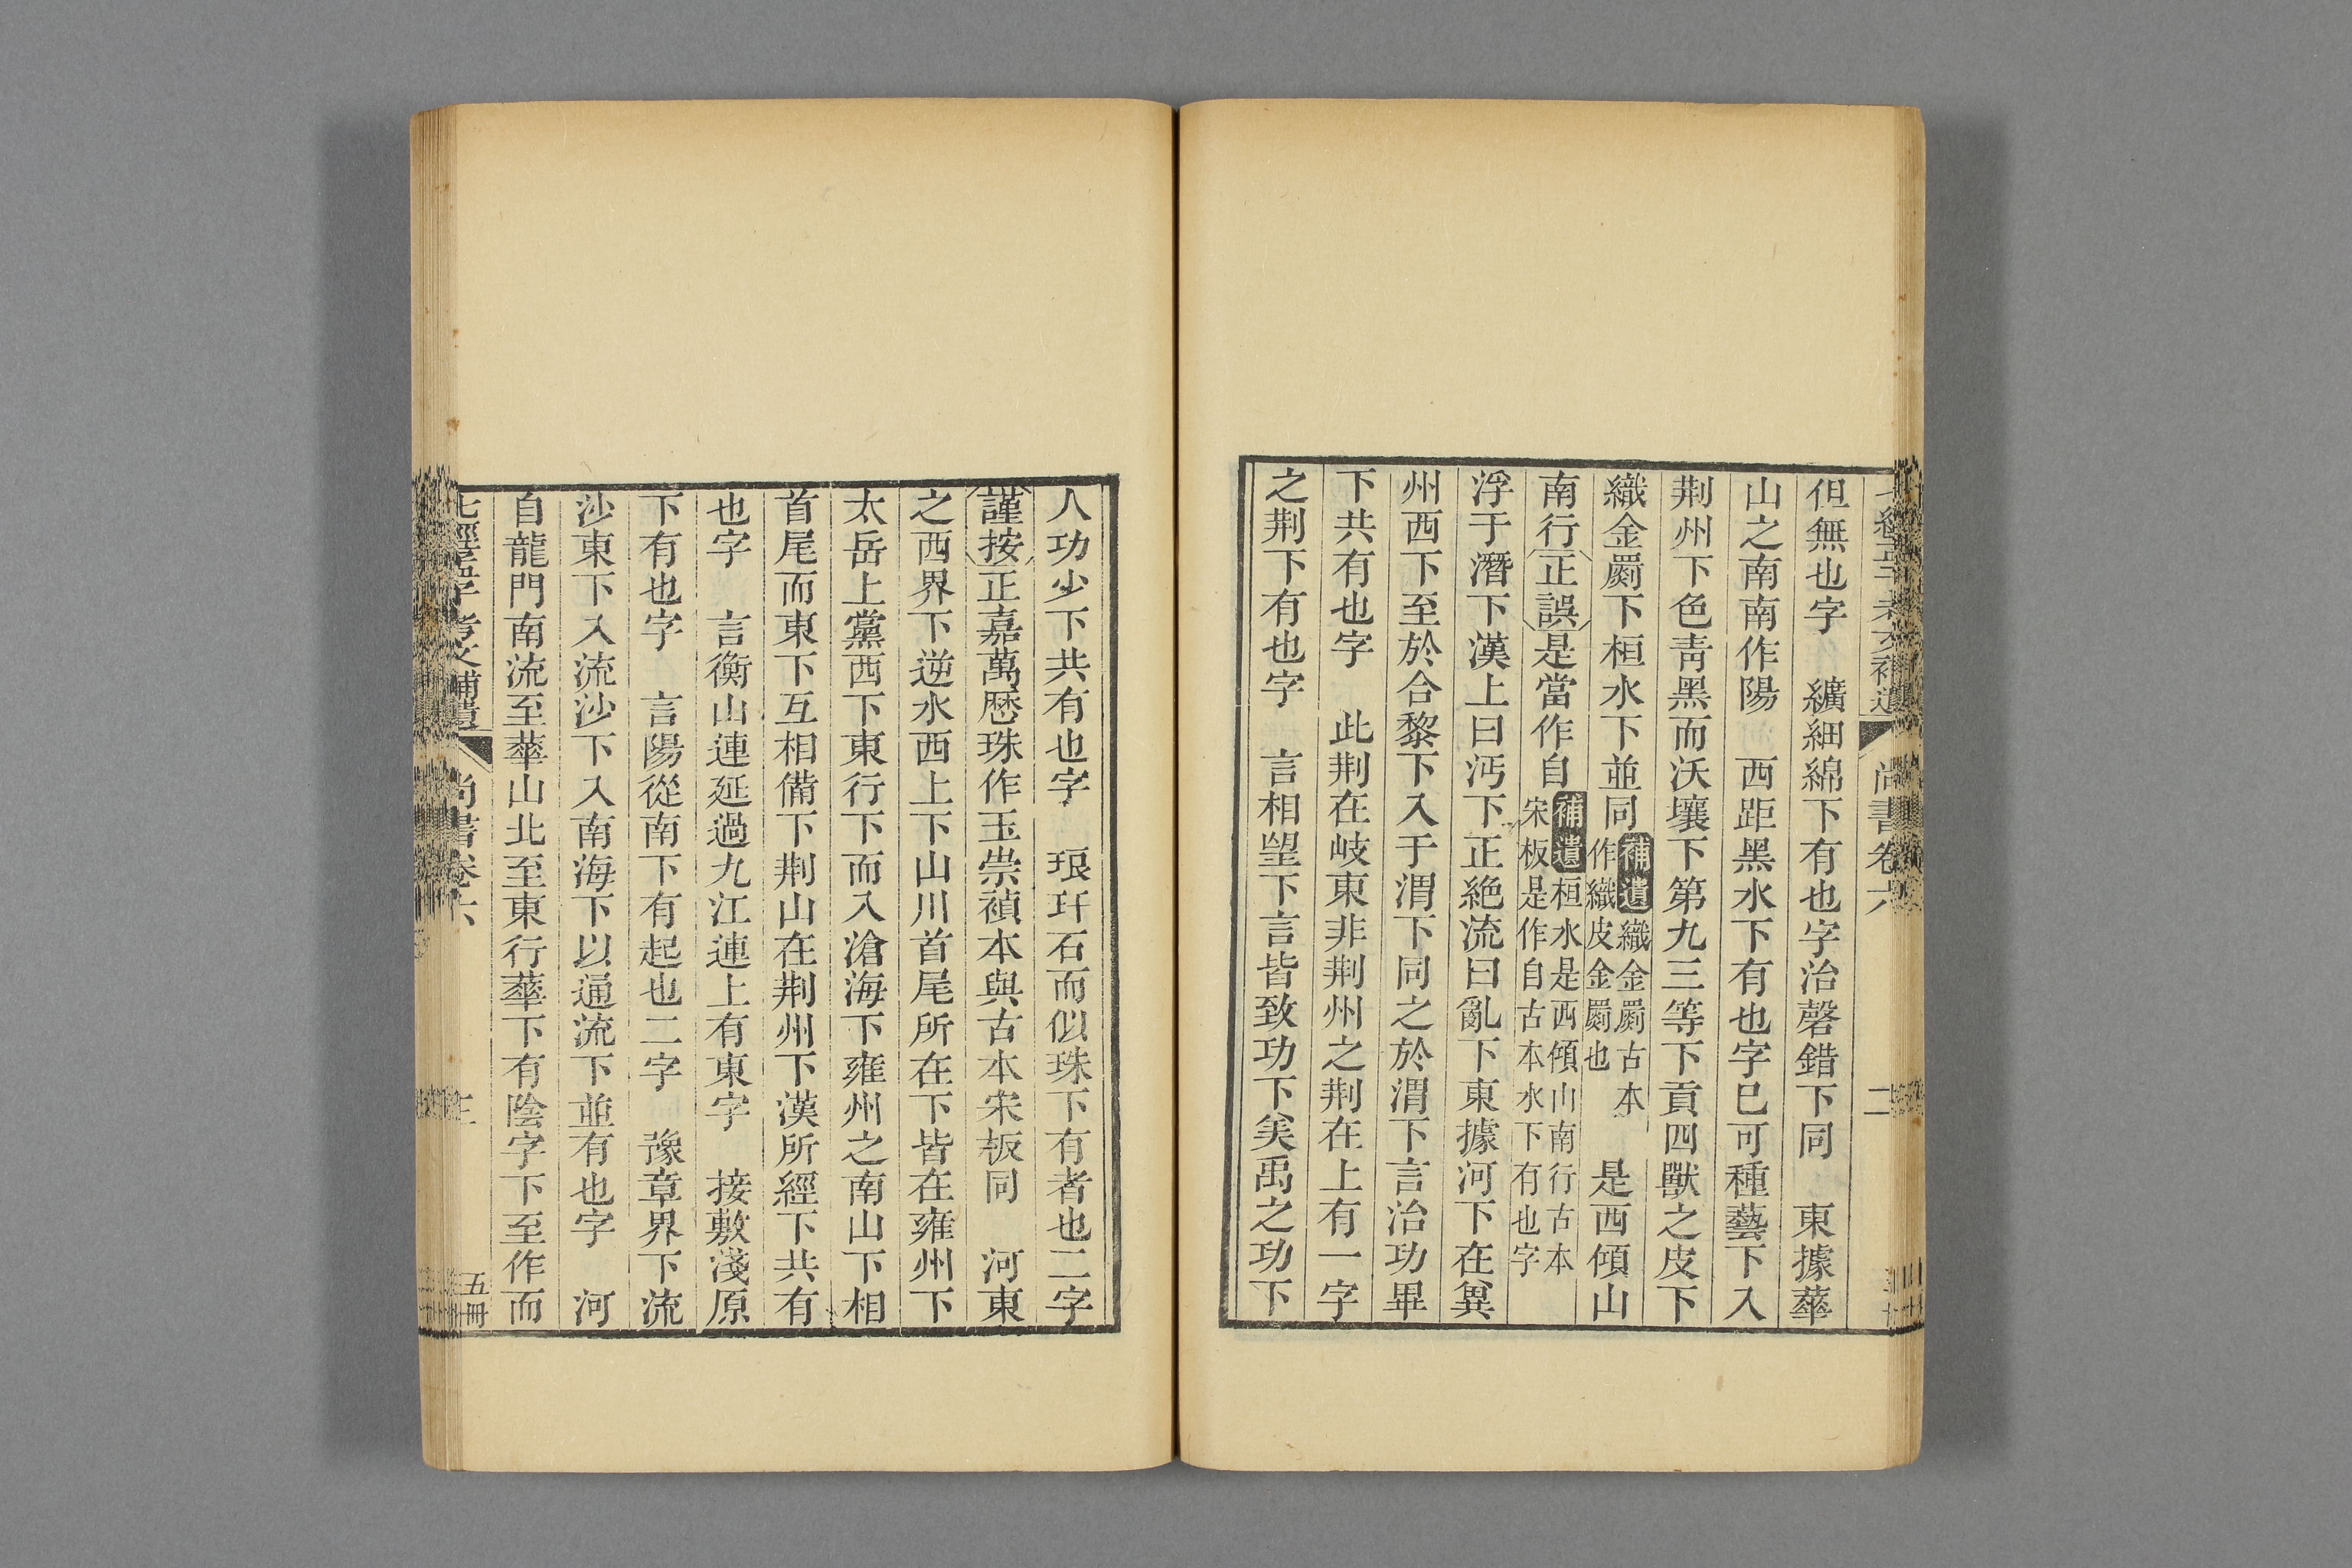 尚書卷六 二
但無也字 纊細綿下有也字治磬錯下同 東據華
山之南南作陽 西距黑水下有也字已可種藝下入
荆州下色靑黑而沃壤下第九三等下貢四獸之皮下
織金罽下桓水下並同補遺織金罽古本作織皮金罽也 是西傾山
南行正誤是當作自補遺桓水是西傾山南行古本宋板是作自古本水下有也字
浮于潛下漢上曰沔下正絶流曰亂下東據河下在冀
州西下至於合黎下入于渭下同之於渭下言治功畢
下共有也字 此荆在岐東非荆州之荆在上有一字
之荆下有也字 言相望下言皆致功下矣禹之功下
人功少下共有也字 琅玕石而似珠下有者也二字
謹按正嘉萬曆珠作玉崇禎本與古本宋板同 河東
之西界下逆水西上下山川首尾所在下皆在雍州下
太岳上黨西下東行下而入滄海下雍州之南山下相
首尾而東下互相備下荆山在荆州下漢所經下共有
也字 言衡山連延過九江連上有東字 接敷淺原
下有也字 言陽從南下有起也二字 豫章界下流
沙東下入流沙下入南海下以通流下並有也字 河
自龍門南流至華山北至東行華下有陰字下至作而
七經孟子考文補遺 尚書卷六 三 五冊